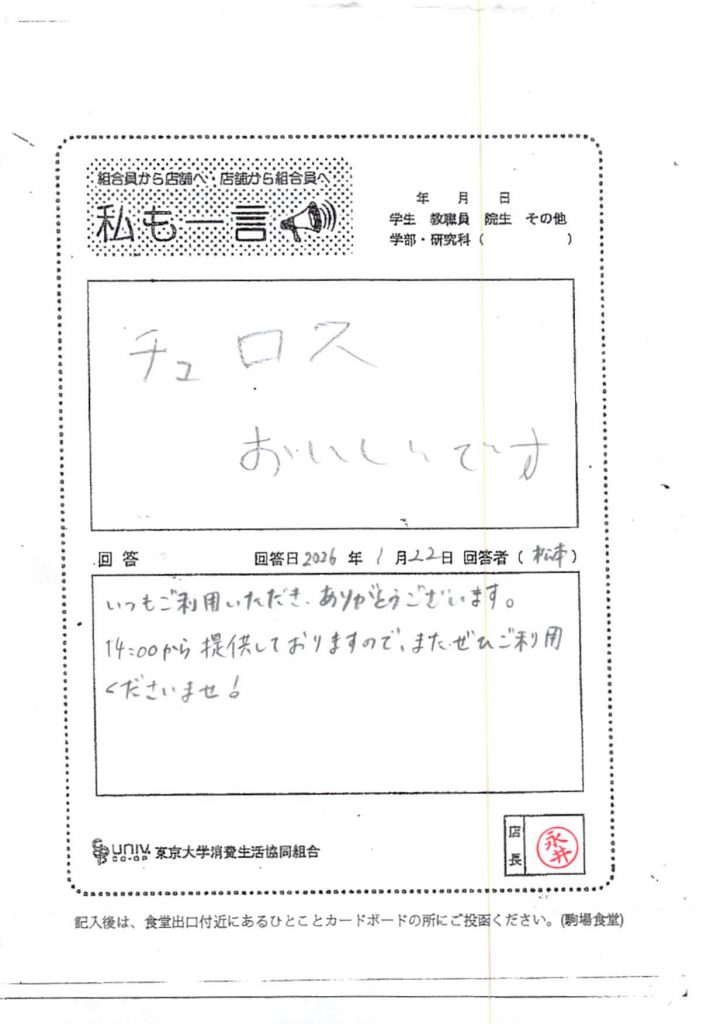 組合員から店舗へ・店舗から組合員へ
私も一言
年 月 日
学生 教職員 院生 その他
学部・研究科（ ）
チュロス
おいしいです
回答 回答日 2026 年 1 月 22 日 回答者（ 松本 ）
いつもご利用いただき、ありがとうございます。
14:00から提供しておりますので、またぜひご利用
くださいませ！
UNIV. CO-OP 東京大学消費生活協同組合
店長 永井
記入後は、食堂出口付近にあるひとことカードボードの所にご投函ください。(駒場食堂)